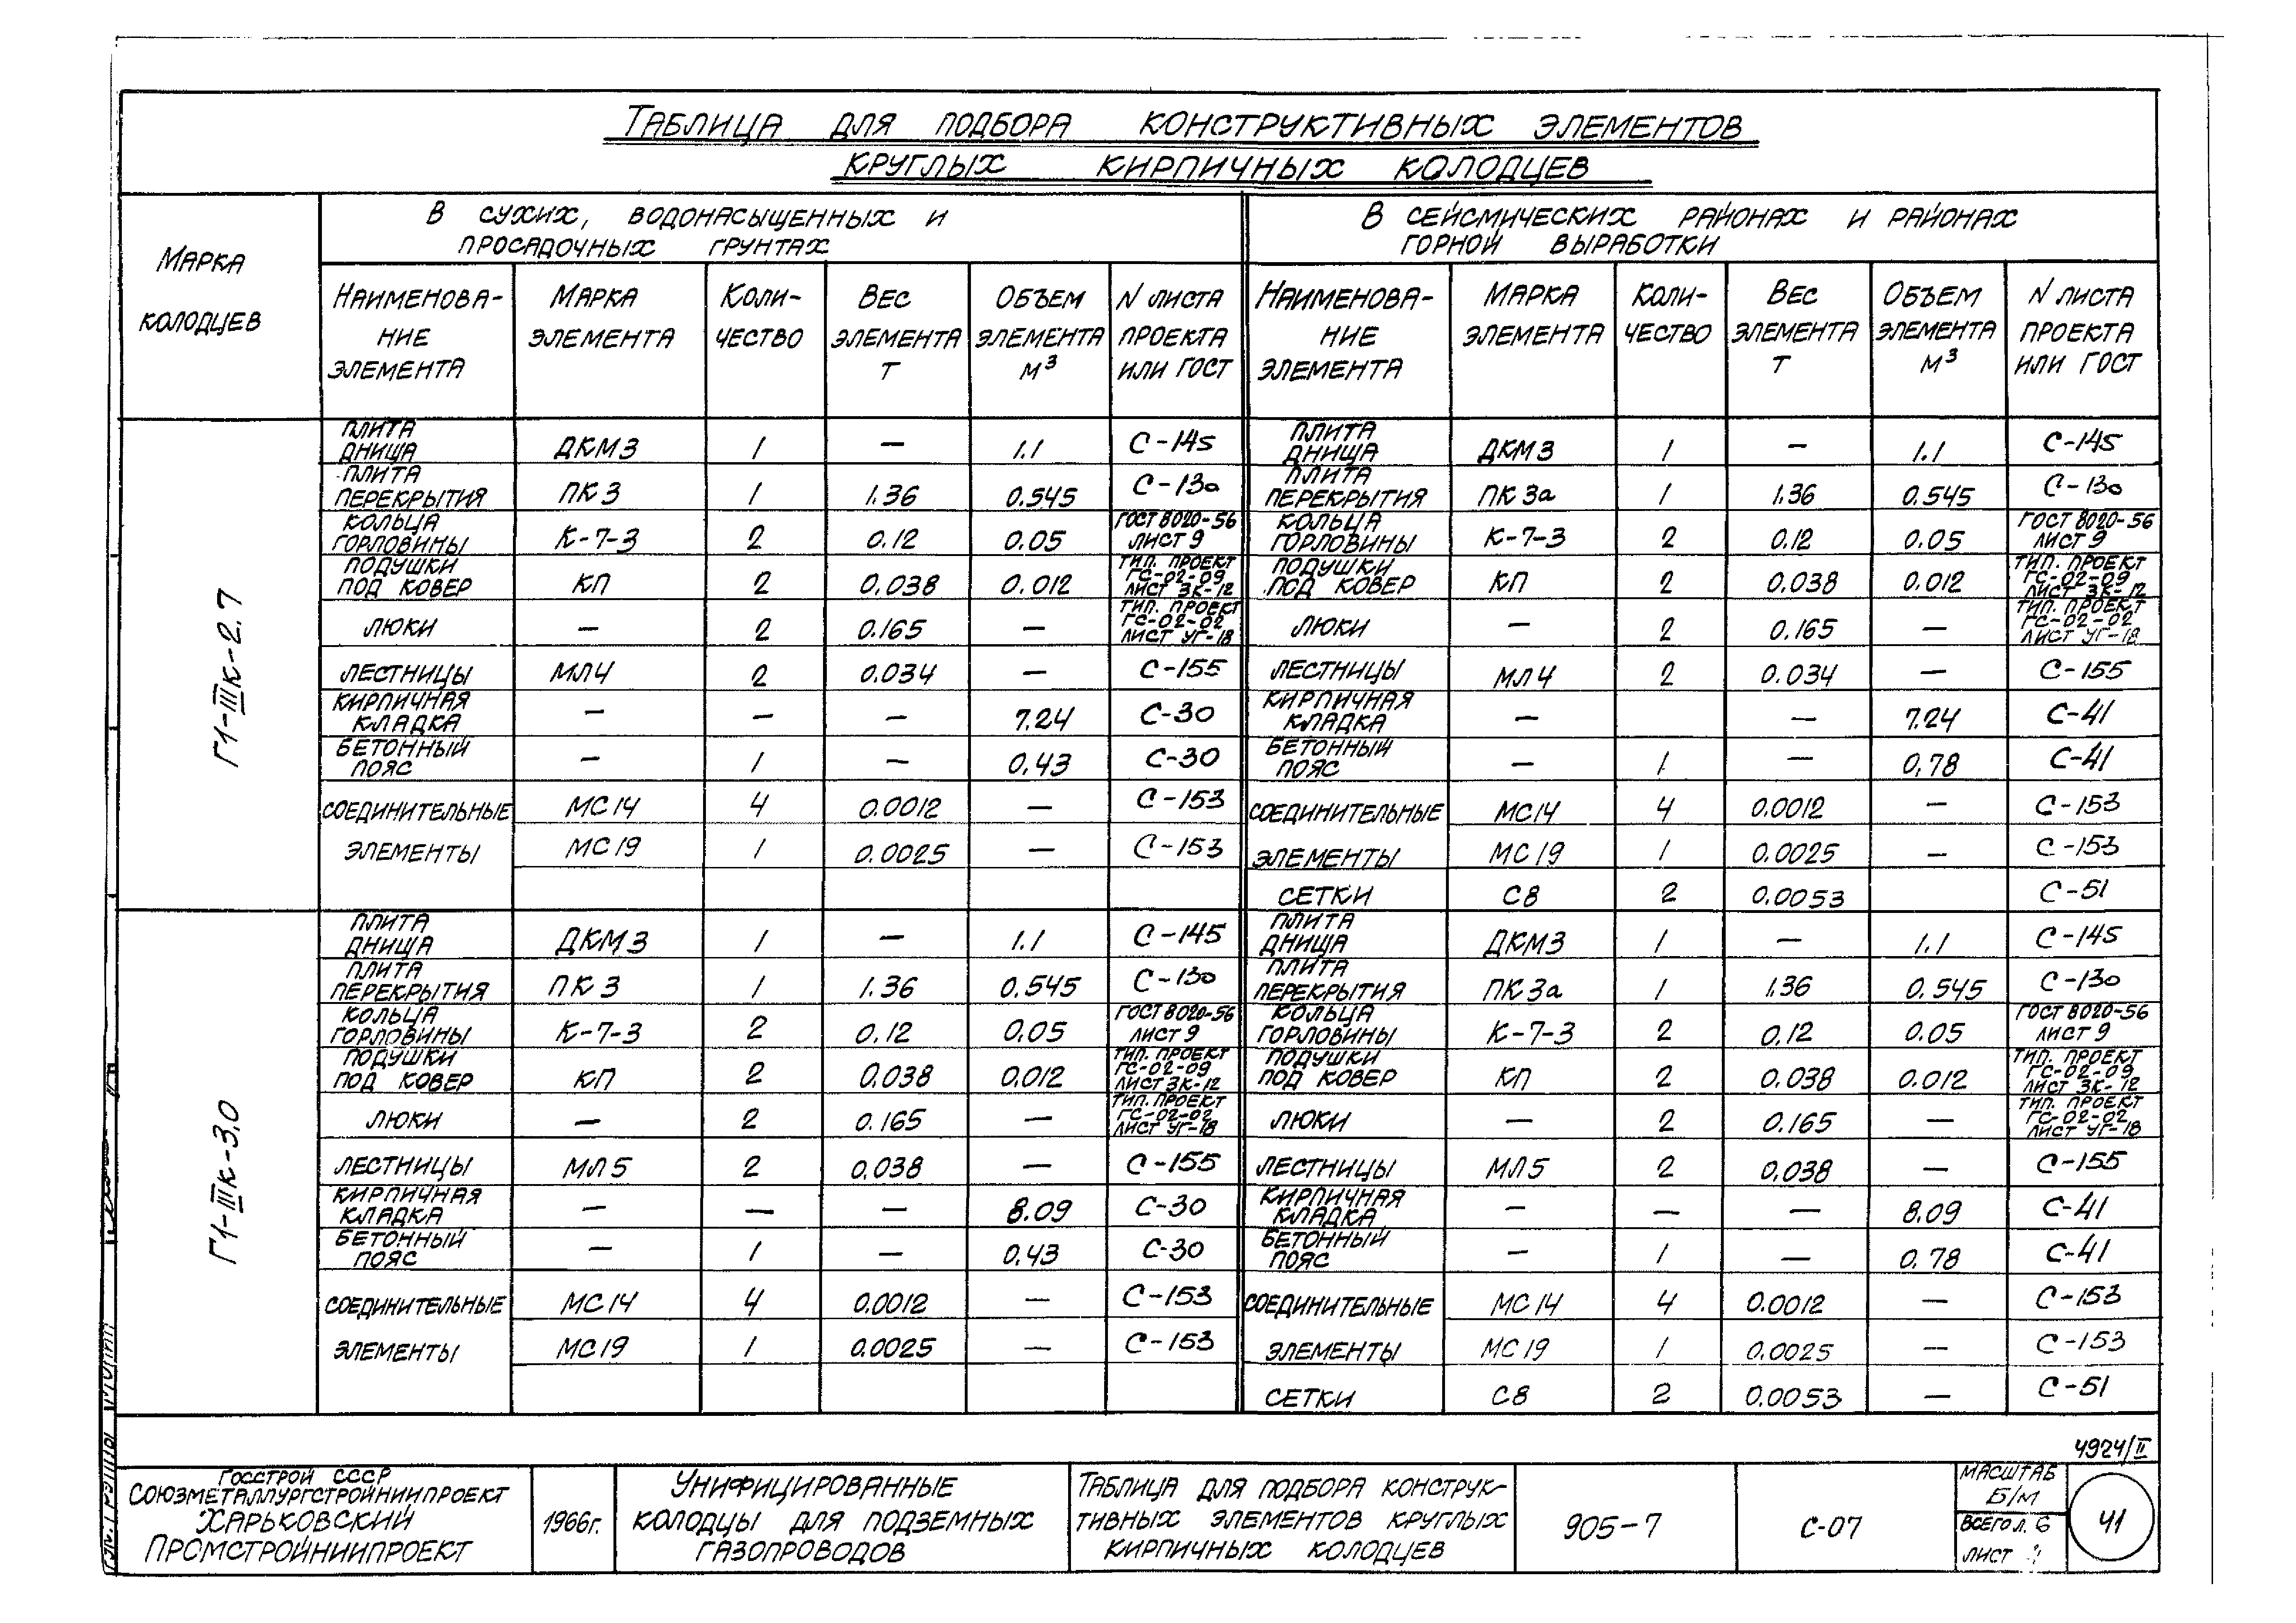 ТАБЛИЦА ДЛЯ ПОДБОРА КОНСТРУКТИВНЫХ ЭЛЕМЕНТОВ
КРУГЛЫХ КИРПИЧНЫХ КОЛОДЦЕВ
МАРКА
КОЛОДЦЕВ
В СУХИХ, ВОДОНАСЫЩЕННЫХ И
ПРОСАДОЧНЫХ ГРУНТАХ
В СЕЙСМИЧЕСКИХ РАЙОНАХ И РАЙОНАХ
ГОРНОЙ ВЫРАБОТКИ
НАИМЕНОВА- МАРКА КОЛИ- ВЕС ОБЪЕМ N ЛИСТА НАИМЕНОВА- МАРКА КОЛИ- ВЕС ОБЪЕМ N ЛИСТА
НИЕ ЭЛЕМЕНТА ЧЕСТВО ЭЛЕМЕНТА ЭЛЕМЕНТА ПРОЕКТА НИЕ ЭЛЕМЕНТА ЧЕСТВО ЭЛЕМЕНТА ЭЛЕМЕНТА ПРОЕКТА
ЭЛЕМЕНТА Т М³ ИЛИ ГОСТ ЭЛЕМЕНТА Т М³ ИЛИ ГОСТ
Г1-IIIК-2,7
ПЛИТА ПЛИТА
ДНИЩА ДКМ3 1 — 1.1 С-145 ДНИЩА ДКМ3 1 — 1.1 С-145
ПЛИТА ПЛИТА
ПЕРЕКРЫТИЯ ПК3 1 1.36 0.545 С-130 ПЕРЕКРЫТИЯ ПК3а 1 1.36 0.545 С-130
КОЛЬЦА ГОСТ 8020-56 КОЛЬЦА ГОСТ 8020-56
ГОРЛОВИНЫ К-7-3 2 0.12 0.05 ЛИСТ 9 ГОРЛОВИНЫ К-7-3 2 0.12 0.05 ЛИСТ 9
ПОДУШКИ ТИП. ПРОЕКТ ПОДУШКИ ТИП. ПРОЕКТ
ПОД КОВЕР КП 2 0.038 0.012 ГС-02-09 ПОД КОВЕР КП 2 0.038 0.012 ГС-02-09
ЛИСТ ЗК-12 ЛИСТ ЗК-12
ТИП. ПРОЕКТ ТИП. ПРОЕКТ
ЛЮКИ — 2 0.165 — ГС-02-02 ЛЮКИ — 2 0.165 — ГС-02-02
ЛИСТ УГ-18 ЛИСТ УГ-18
ЛЕСТНИЦЫ МЛ4 2 0.034 — С-155 ЛЕСТНИЦЫ МЛ4 2 0.034 — С-155
КИРПИЧНАЯ КИРПИЧНАЯ
КЛАДКА — — — 7.24 С-30 КЛАДКА — — 7.24 С-41
БЕТОННЫЙ БЕТОННЫЙ
ПОЯС — 1 — 0,43 С-30 ПОЯС — 1 — 0,78 С-41
СОЕДИНИТЕЛЬНЫЕ МС14 4 0.0012 — С-153 СОЕДИНИТЕЛЬНЫЕ МС14 4 0.0012 — С-153
ЭЛЕМЕНТЫ МС19 1 0.0025 — С-153 ЭЛЕМЕНТЫ МС19 1 0.0025 — С-153
СЕТКИ С8 2 0.0053 С-51
Г1-IIIК-3,0
ПЛИТА ПЛИТА
ДНИЩА ДКМ3 1 — 1.1 С-145 ДНИЩА ДКМ3 1 — 1.1 С-145
ПЛИТА ПЛИТА
ПЕРЕКРЫТИЯ ПК3 1 1.36 0.545 С-130 ПЕРЕКРЫТИЯ ПК3а 1 1.36 0.545 С-130
КОЛЬЦА ГОСТ 8020-56 КОЛЬЦА ГОСТ 8020-56
ГОРЛОВИНЫ К-7-3 2 0.12 0.05 ЛИСТ 9 ГОРЛОВИНЫ К-7-3 2 0,12 0.05 ЛИСТ 9
ПОДУШКИ ТИП. ПРОЕКТ ПОДУШКИ ТИП. ПРОЕКТ
ПОД КОВЕР КП 2 0.038 0.012 ГС-02-09 ПОД КОВЕР КП 2 0.038 0.012 ГС-02-09
ЛИСТ ЗК-12 ЛИСТ ЗК-12
ТИП. ПРОЕКТ ТИП. ПРОЕКТ
ЛЮКИ — 2 0.165 — ГС-02-02 ЛЮКИ — 2 0.165 — ГС-02-02
ЛИСТ УГ-18 ЛИСТ УГ-18
ЛЕСТНИЦЫ МЛ5 2 0,038 — С-155 ЛЕСТНИЦЫ МЛ5 2 0,038 — С-155
КИРПИЧНАЯ КИРПИЧНАЯ
КЛАДКА — — — 8.09 С-30 КЛАДКА — — — 8.09 С-41
БЕТОННЫЙ БЕТОННЫЙ
ПОЯС — 1 — 0,43 С-30 ПОЯС — 1 — 0,78 С-41
СОЕДИНИТЕЛЬНЫЕ МС14 4 0.0012 — С-153 СОЕДИНИТЕЛЬНЫЕ МС14 4 0.0012 — С-153
ЭЛЕМЕНТЫ МС19 1 0.0025 — С-153 ЭЛЕМЕНТЫ МС19 1 0.0025 — С-153
СЕТКИ С8 2 0.0053 — С-51
4924/II
ГОССТРОЙ СССР
СОЮЗМЕТАЛЛУРГСТРОЙНИИПРОЕКТ
ХАРЬКОВСКИЙ
ПРОМСТРОЙНИИПРОЕКТ
1966г.
УНИФИЦИРОВАННЫЕ
КОЛОДЦЫ ДЛЯ ПОДЗЕМНЫХ
ГАЗОПРОВОДОВ
ТАБЛИЦА ДЛЯ ПОДБОРА КОНСТРУК-
ТИВНЫХ ЭЛЕМЕНТОВ КРУГЛЫХ
КИРПИЧНЫХ КОЛОДЦЕВ
905-7
С-07
МАСШТАБ
Б/М
ВСЕГО Л. 6
ЛИСТ
41